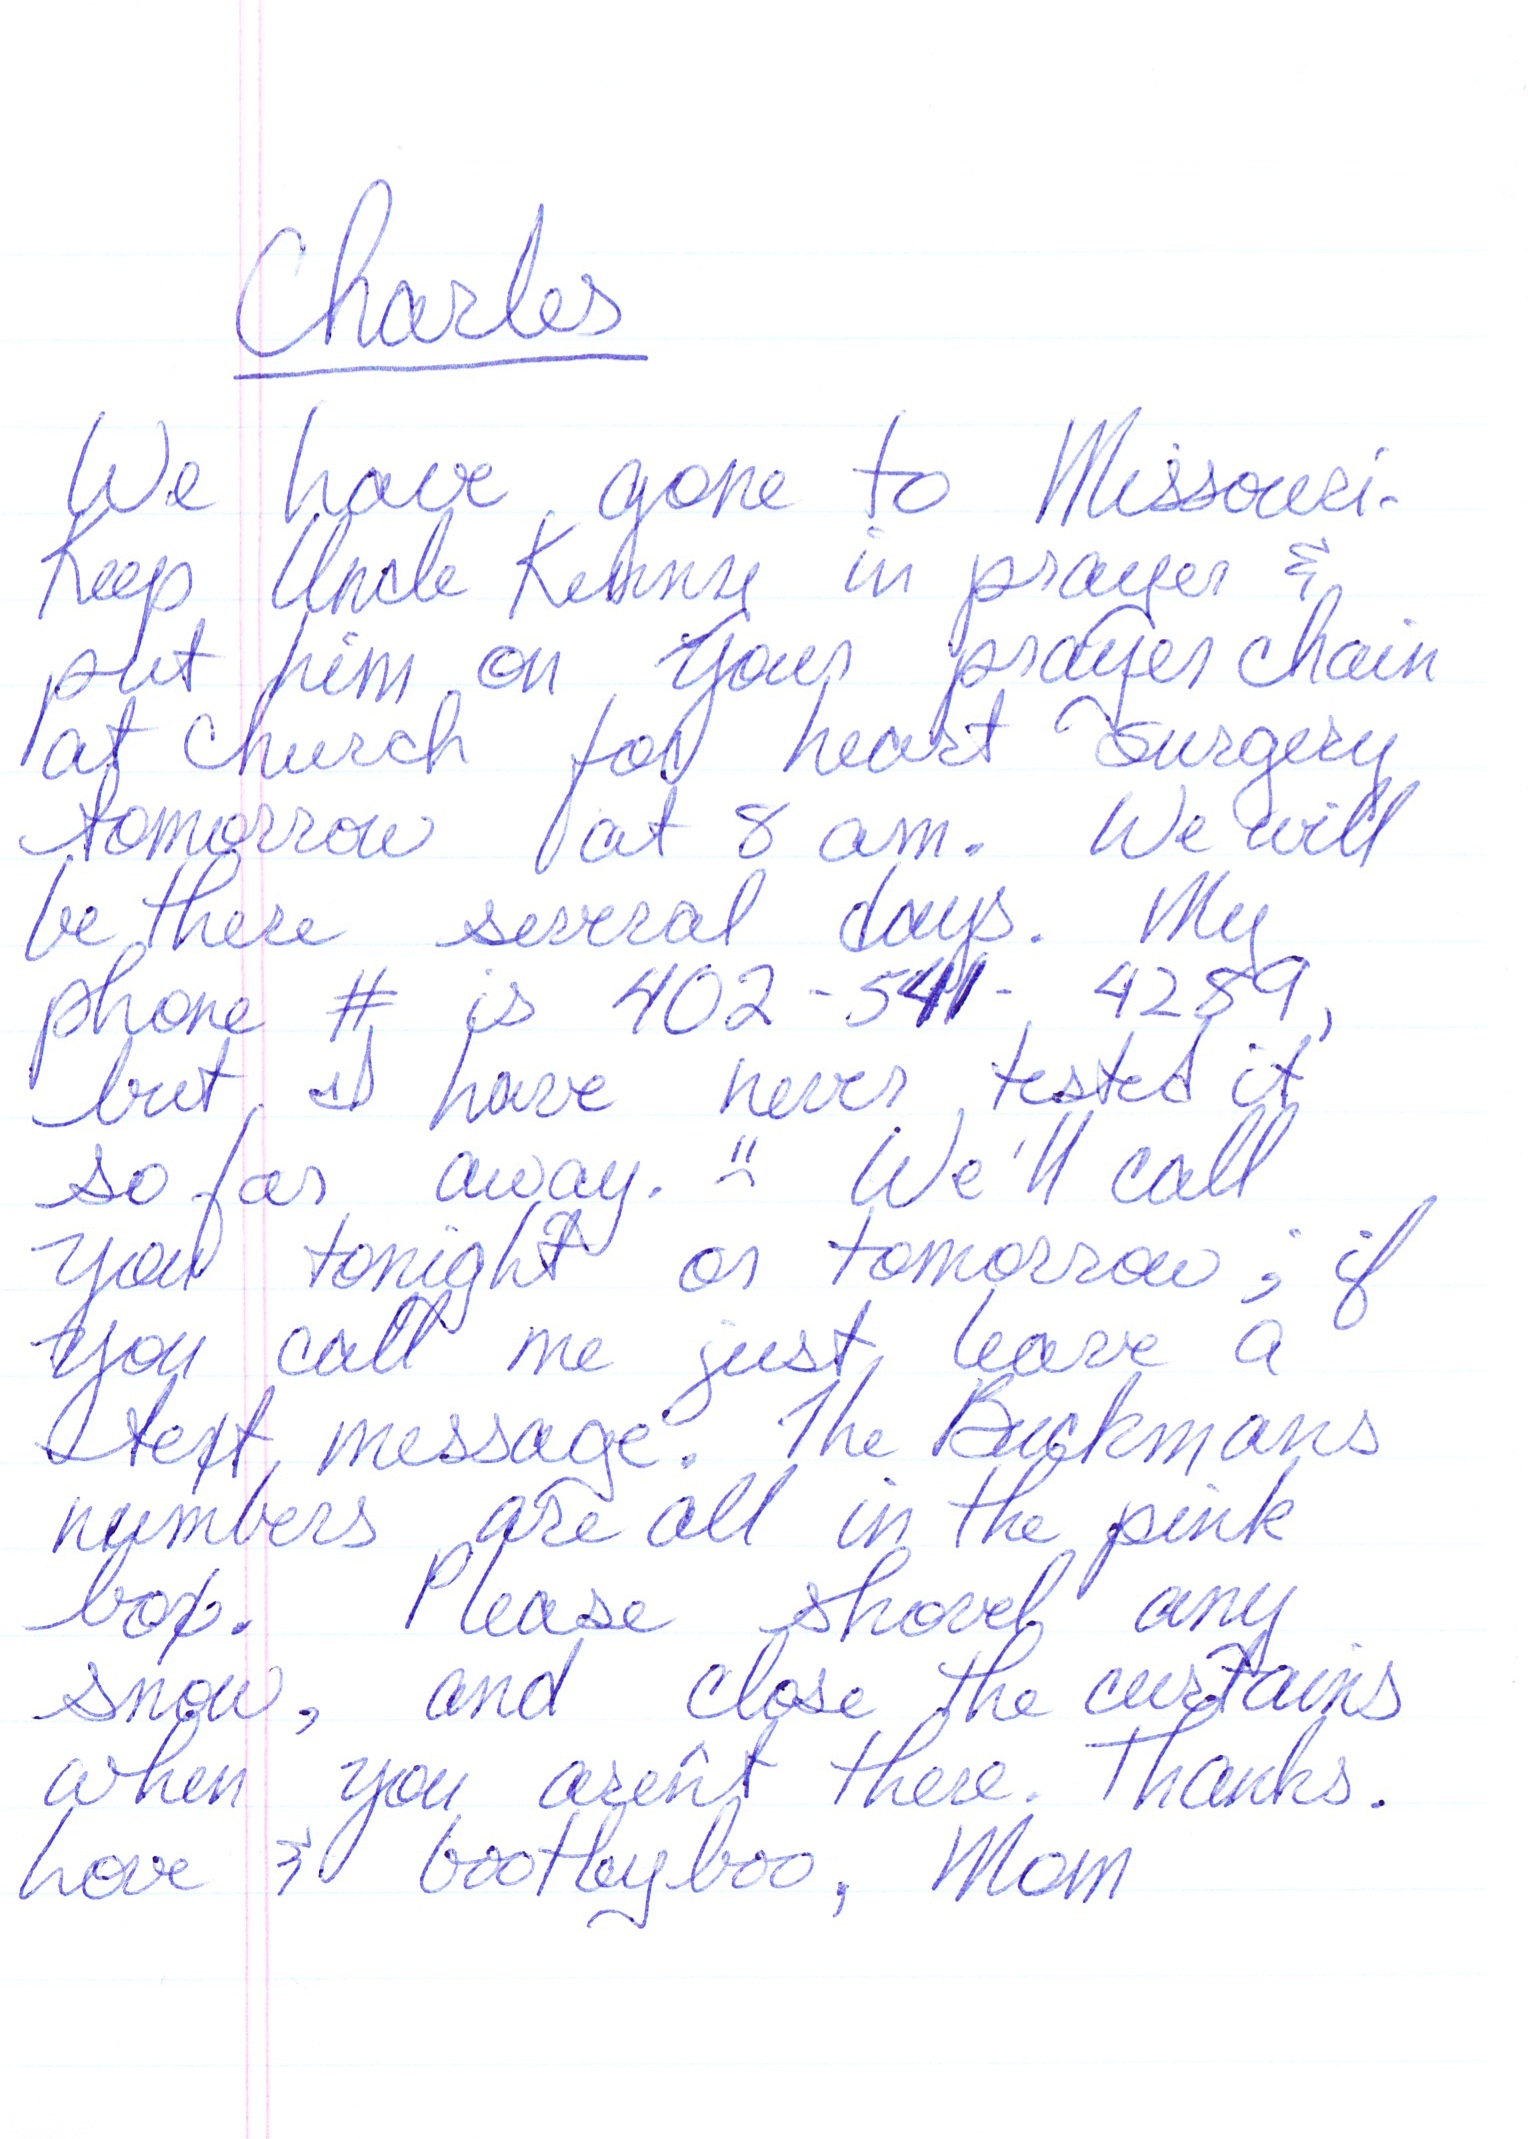 Charles
We have gone to Missouri.
Keep Uncle Kenny in prayer &
put him on your prayer chain
at church for heart surgery
tomorrow at 8 am. We will
be there several days. My
phone # is 402-541-4289,
but I have never tested it
so far away. We'll call
you tonight or tomorrow; if
you call me just leave a
text message. The Buckmans
numbers are all in the pink
box. Please shovel any
snow, and close the curtains
when you aren't there. Thanks.
Love & bootbyboo, Mom